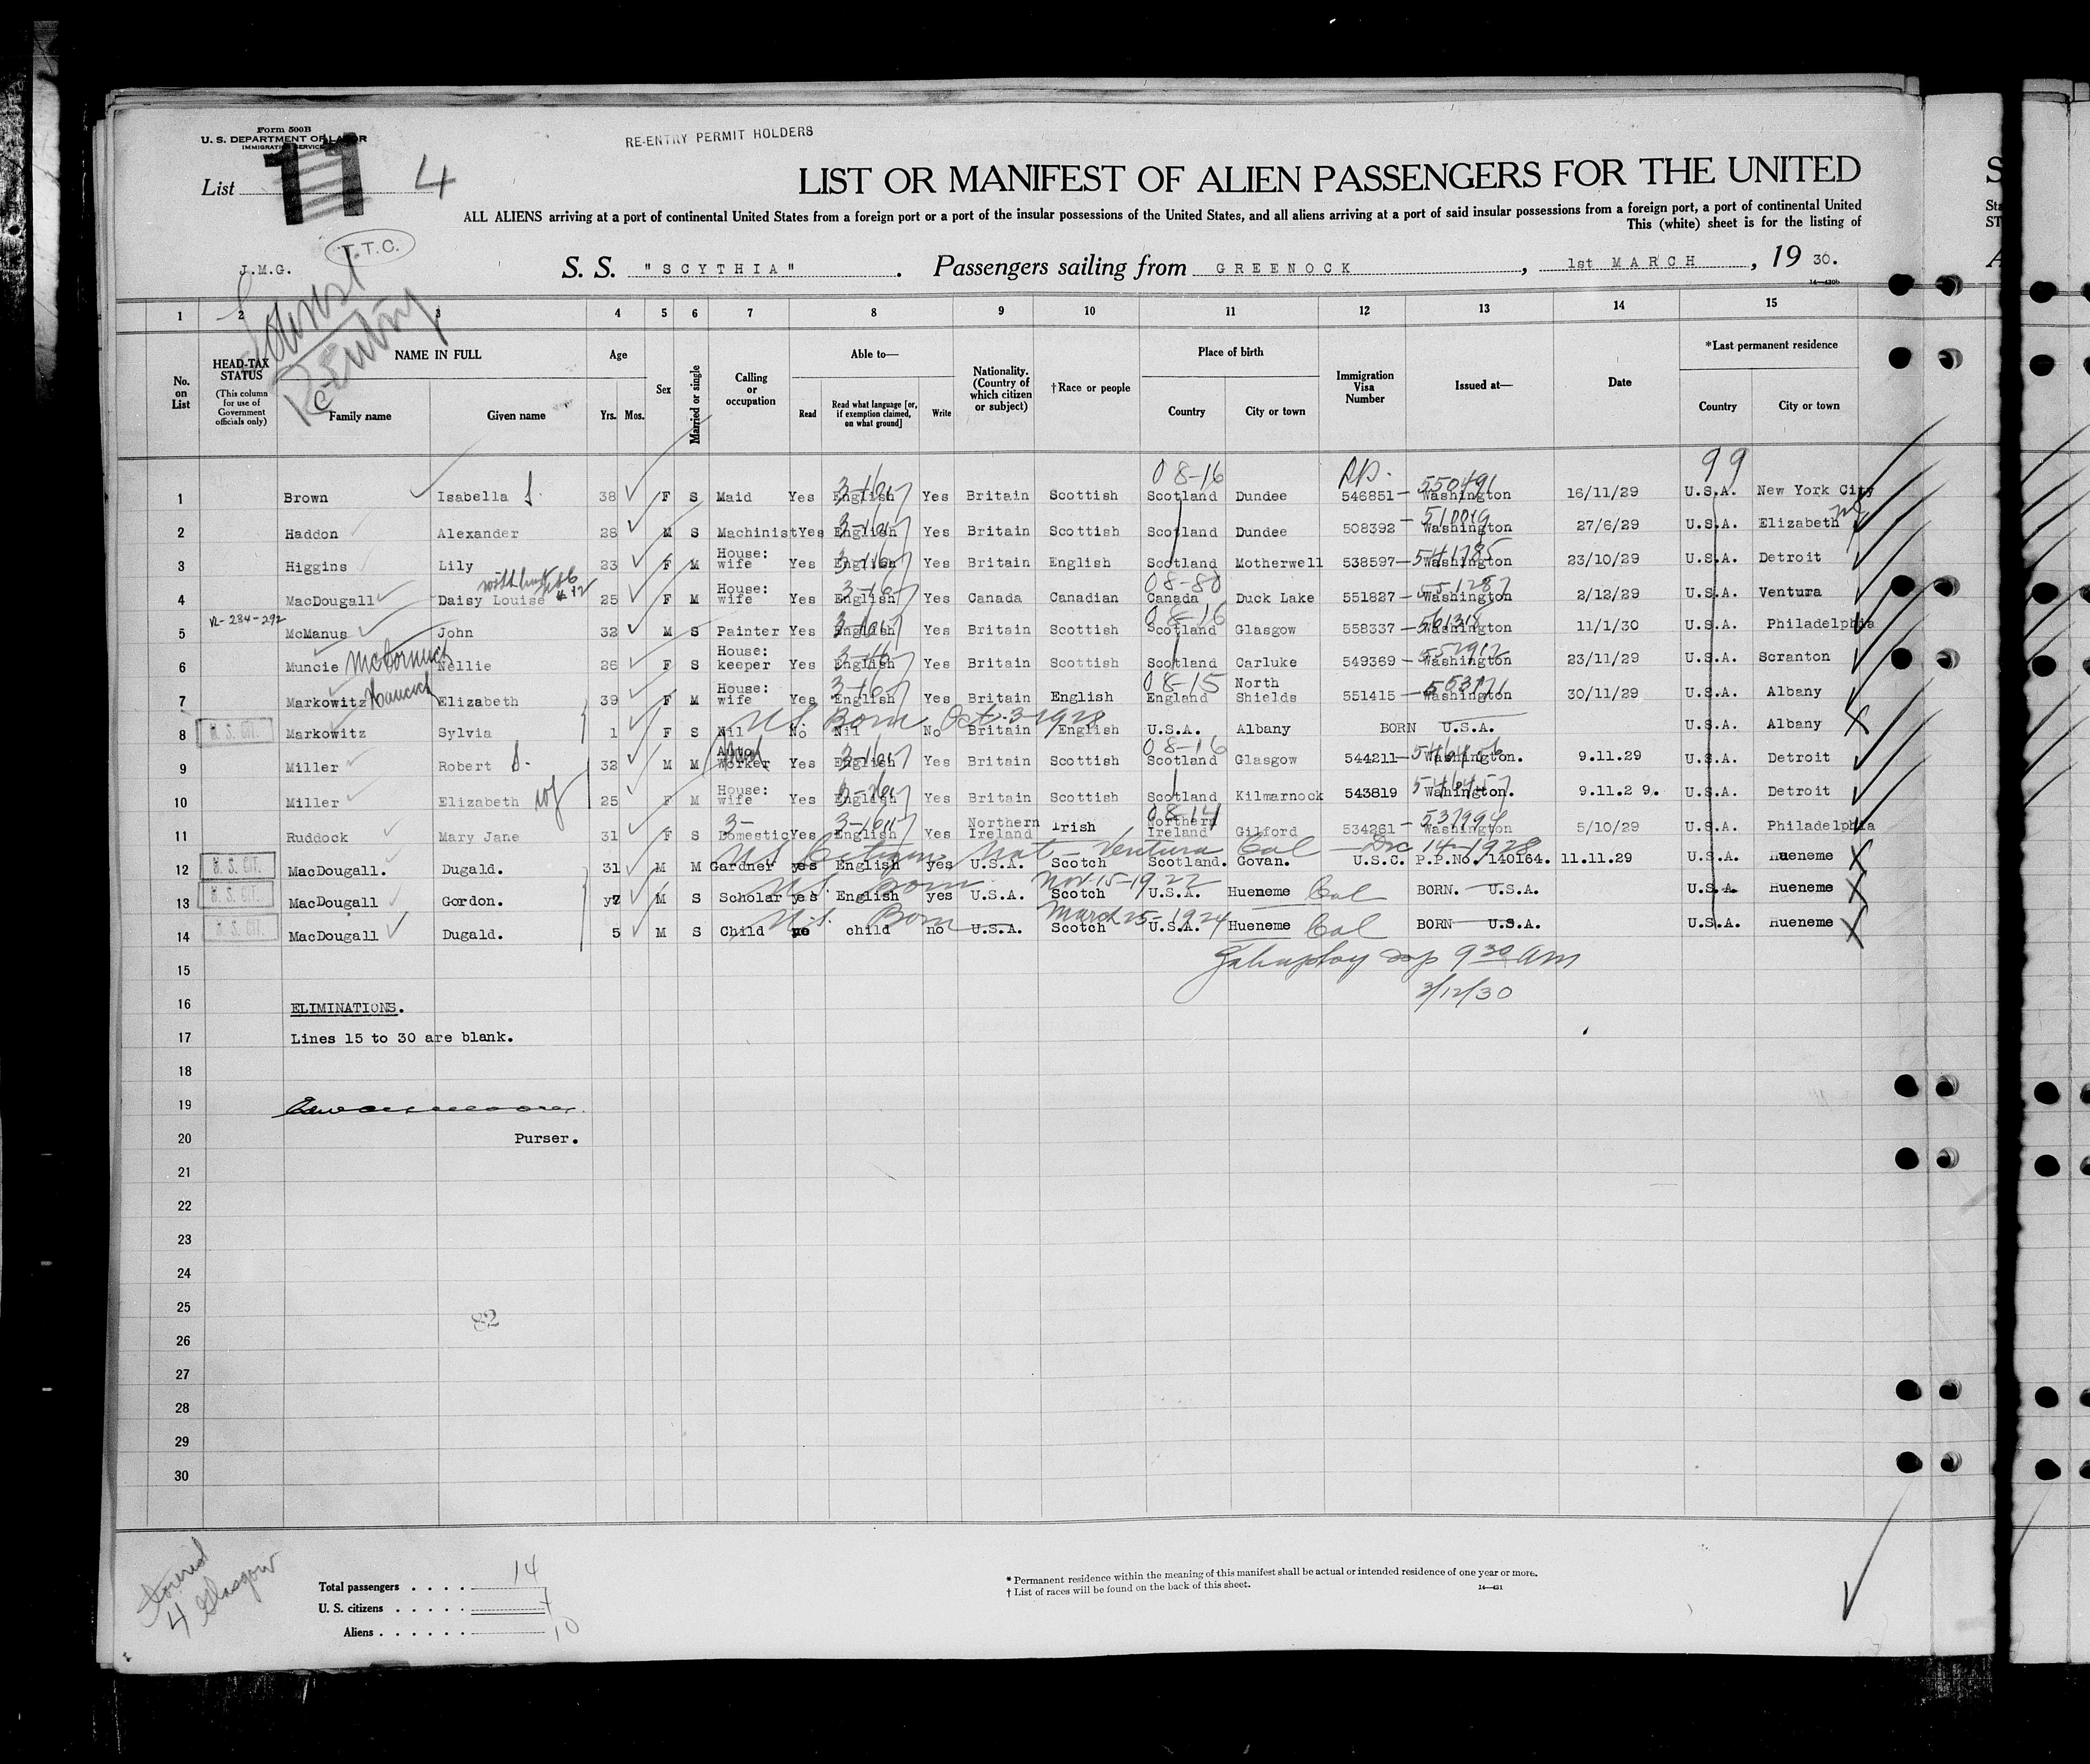 Form 500B
U. S. DEPARTMENT OF LABOR
IMMIGRATION SERVICE
RE-ENTRY PERMIT HOLDERS
List 11 4
LIST OR MANIFEST OF ALIEN PASSENGERS FOR THE UNITED
ALL ALIENS arriving at a port of continental United States from a foreign port or a port of the insular possessions of the United States, and all aliens arriving at a port of said insular possessions from a foreign port, a port of continental United
This (white) sheet is for the listing of
T.T.C.
J.M.G.
S. S. "SCYTHIA". Passengers sailing from GREENOCK, 1st MARCH, 19 30.
14—430b
Tourist
ReEntry
1 2 3 4 5 6 7 8 9 10 11 12 13 14 15
No. on List
HEAD-TAX STATUS
(This column for use of Government officials only)
NAME IN FULL
Family name
Given name
Age
Yrs. Mos.
Sex
Married or single
Calling or occupation
Able to—
Read
Read what language [or, if exemption claimed, on what ground]
Write
Nationality. (Country of which citizen or subject)
†Race or people
Place of birth
Country
City or town
Immigration Visa Number
Issued at—
Date
*Last permanent residence
Country
City or town
08-16 99
1 Brown Isabella S. 38 F S Maid Yes English Yes Britain Scottish Scotland Dundee 546851 — Washington 550491 16/11/29 U.S.A. New York City
2 Haddon Alexander 28 M S Machinist Yes English Yes Britain Scottish Scotland Dundee 508392 — Washington 27/6/29 U.S.A. Elizabeth
3 Higgins Lily 23 F M House: wife Yes English Yes Britain English Scotland Motherwell 538597 — Washington 541785 23/10/29 U.S.A. Detroit
4 MacDougall Daisy Louise 25 F M House: wife Yes English Yes Canada Canadian 08-80 Canada Duck Lake 551827 — Washington 2/12/29 U.S.A. Ventura
5 McManus John 32 M S Painter Yes English Yes Britain Scottish 08-16 Scotland Glasgow 558337 — Washington 11/1/30 U.S.A. Philadelphia
6 Muncie McCormick Nellie 26 F S House: keeper Yes English Yes Britain Scottish Scotland Carluke 549369 — Washington 23/11/29 U.S.A. Scranton
7 Markowitz Elizabeth 39 F M House: wife Yes English Yes Britain English 08-15 England North Shields 551415 — Washington 30/11/29 U.S.A. Albany
US Born Oct. 3-1928
8 U. S. CIT. Markowitz Sylvia 1 F S Nil No Nil No Britain English U.S.A. Albany BORN U.S.A. U.S.A. Albany
9 Miller Robert S. 32 M M Auto Worker Yes English Yes Britain Scottish 08-16 Scotland Glasgow 544211 — Washington. 9.11.29 U.S.A. Detroit
10 Miller Elizabeth wf 25 F M House: wife Yes English Yes Britain Scottish Scotland Kilmarnock 543819 Washington. 546457 9.11.2 9. U.S.A. Detroit
11 Ruddock Mary Jane 31 F S Domestic Yes English Yes Northern Ireland Irish 08-14 Northern Ireland Gilford 534261 — Washington 537994 5/10/29 U.S.A. Philadelphia
US Citizen Nat — Ventura Cal — Dec 14-1928
12 U. S. CIT. MacDougall. Dugald. 31 M M Gardner yes English yes U.S.A. Scotch Scotland. Govan. U.S.C. P.P.No. 140164. 11.11.29 U.S.A. Hueneme
US born Nov-15-1922
13 U. S. CIT. MacDougall Gordon. 7 M S Scholar yes English yes U.S.A. Scotch U.S.A. Hueneme Cal BORN. U.S.A. U.S.A. Hueneme
U.S. Born March 25-1924
14 U. S. CIT. MacDougall Dugald. 5 M S Child no child no U.S.A. Scotch U.S.A. Hueneme Cal BORN U.S.A. U.S.A. Hueneme
15
9 30 am
3/12/30
16 ELIMINATIONS.
17 Lines 15 to 30 are blank.
18
19
20 Purser.
21
22
23
24
25
82
26
27
28
29
30
Tourist
4 Glasgow
Total passengers . . . . 14
U. S. citizens . . . . .
Aliens . . . . . . 10
* Permanent residence within the meaning of this manifest shall be actual or intended residence of one year or more.
† List of races will be found on the back of this sheet.
14—431